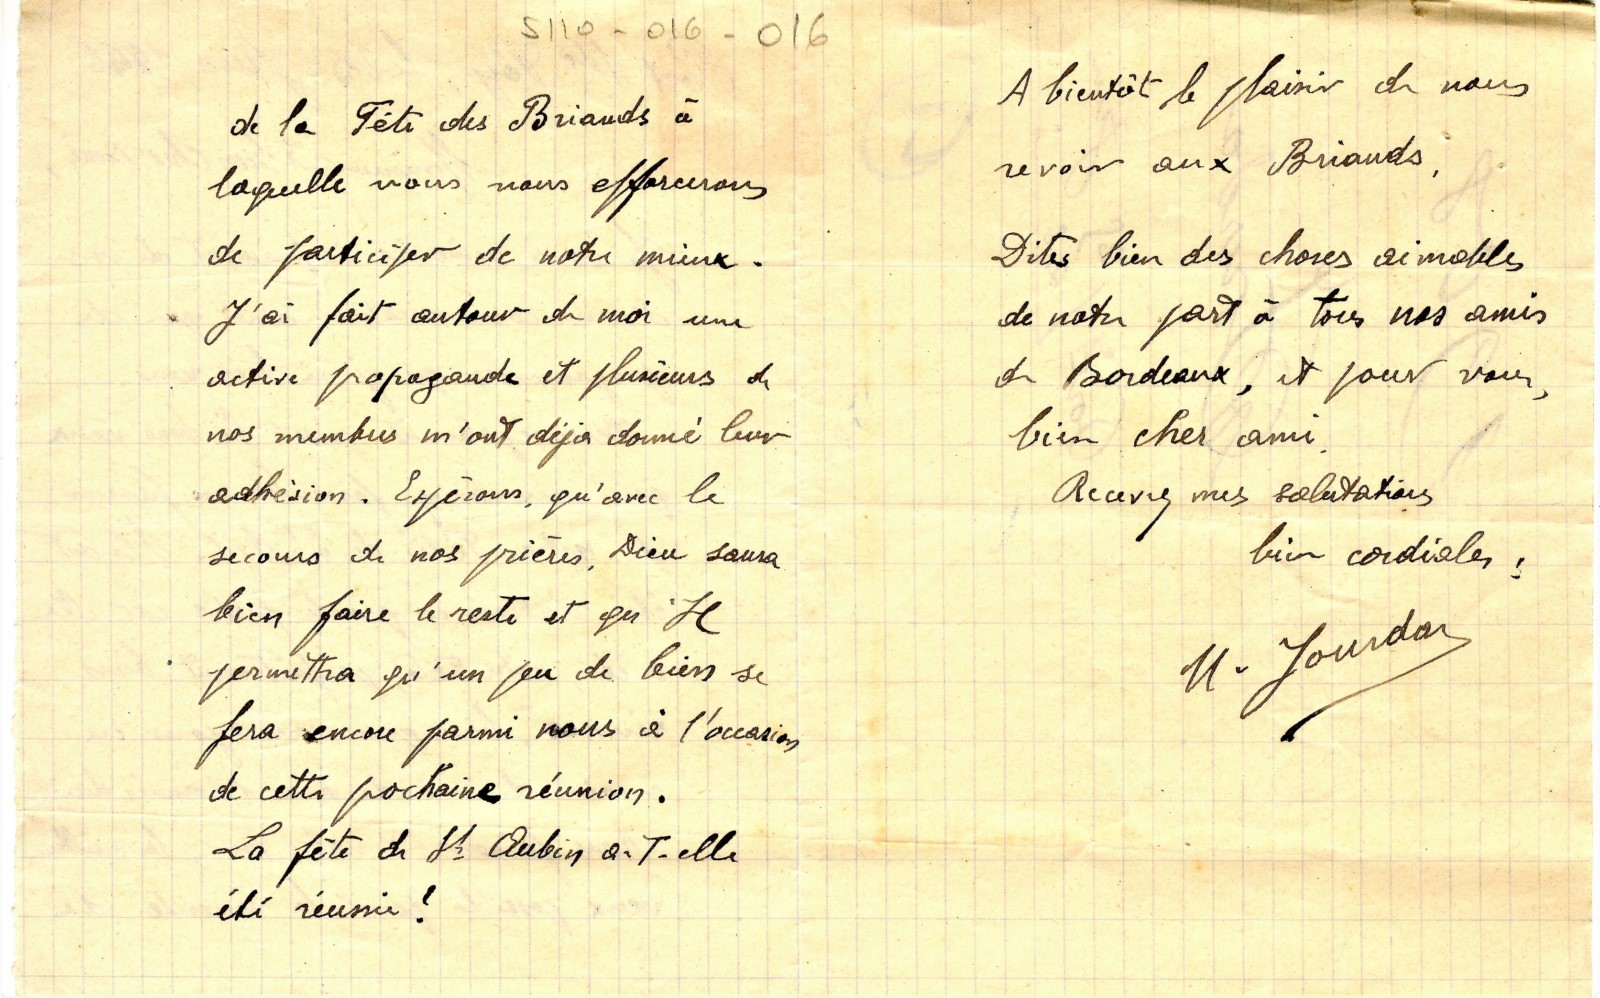 5110-016-016
de la Fête des Briands à
laquelle nous nous efforcerons
de participer de notre mieux.
J'ai fait autour de moi une
active propagande et plusieurs de
nos membres m'ont déja donné leur
adhésion. Espérons, qu'avec le
secours de nos prières, Dieu saura
bien faire le reste et qu'Il
permettra qu'un peu de bien se
fera encore parmi nous à l'occasion
de cette pochaine réunion.
La fête de St Aubin a-T-elle
été réussie ?
A bientôt le plaisir de nous
revoir aux Briands,
Dites bien des choses aimables
de notre part à tous nos amis
de Bordeaux, et pour vous,
bien cher ami,
Recevez mes salutations
bien cordiales ;
Jourdan